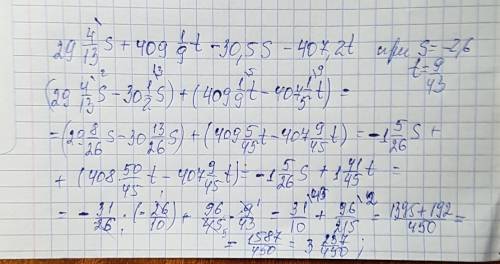 29 4/13 S + 409 1/9 t - 30,5 S - 407,2t при S = -2,6
t = 9/43
(29 4/13 S - 30 1/2 S) + (409 1/9 t - 407 1/5 t) =
= (29 8/26 S - 30 13/26 S) + (409 5/45 t - 407 9/45 t) = -1 5/26 S +
+ (408 50/45 t - 407 9/45 t) = -1 5/26 S + 1 41/45 t =
= - 31/26 · (- 26/10) + 96/45 · 9/43 = 31/10 + 96/215 = 1395+192/450 =
= 1587/450 = 3 237/450 ;